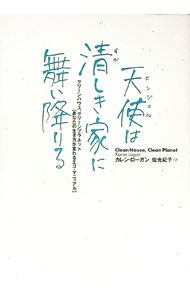 天使は
エンジェル
清しき家に
すが
舞い降りる
クリーンハウス、クリーンプラネット
[あなたの生き方が変わるエコ・マニュアル]
Clean House, Clean Planet
Karen Logan
カレン・ローガン 佐光紀子=訳